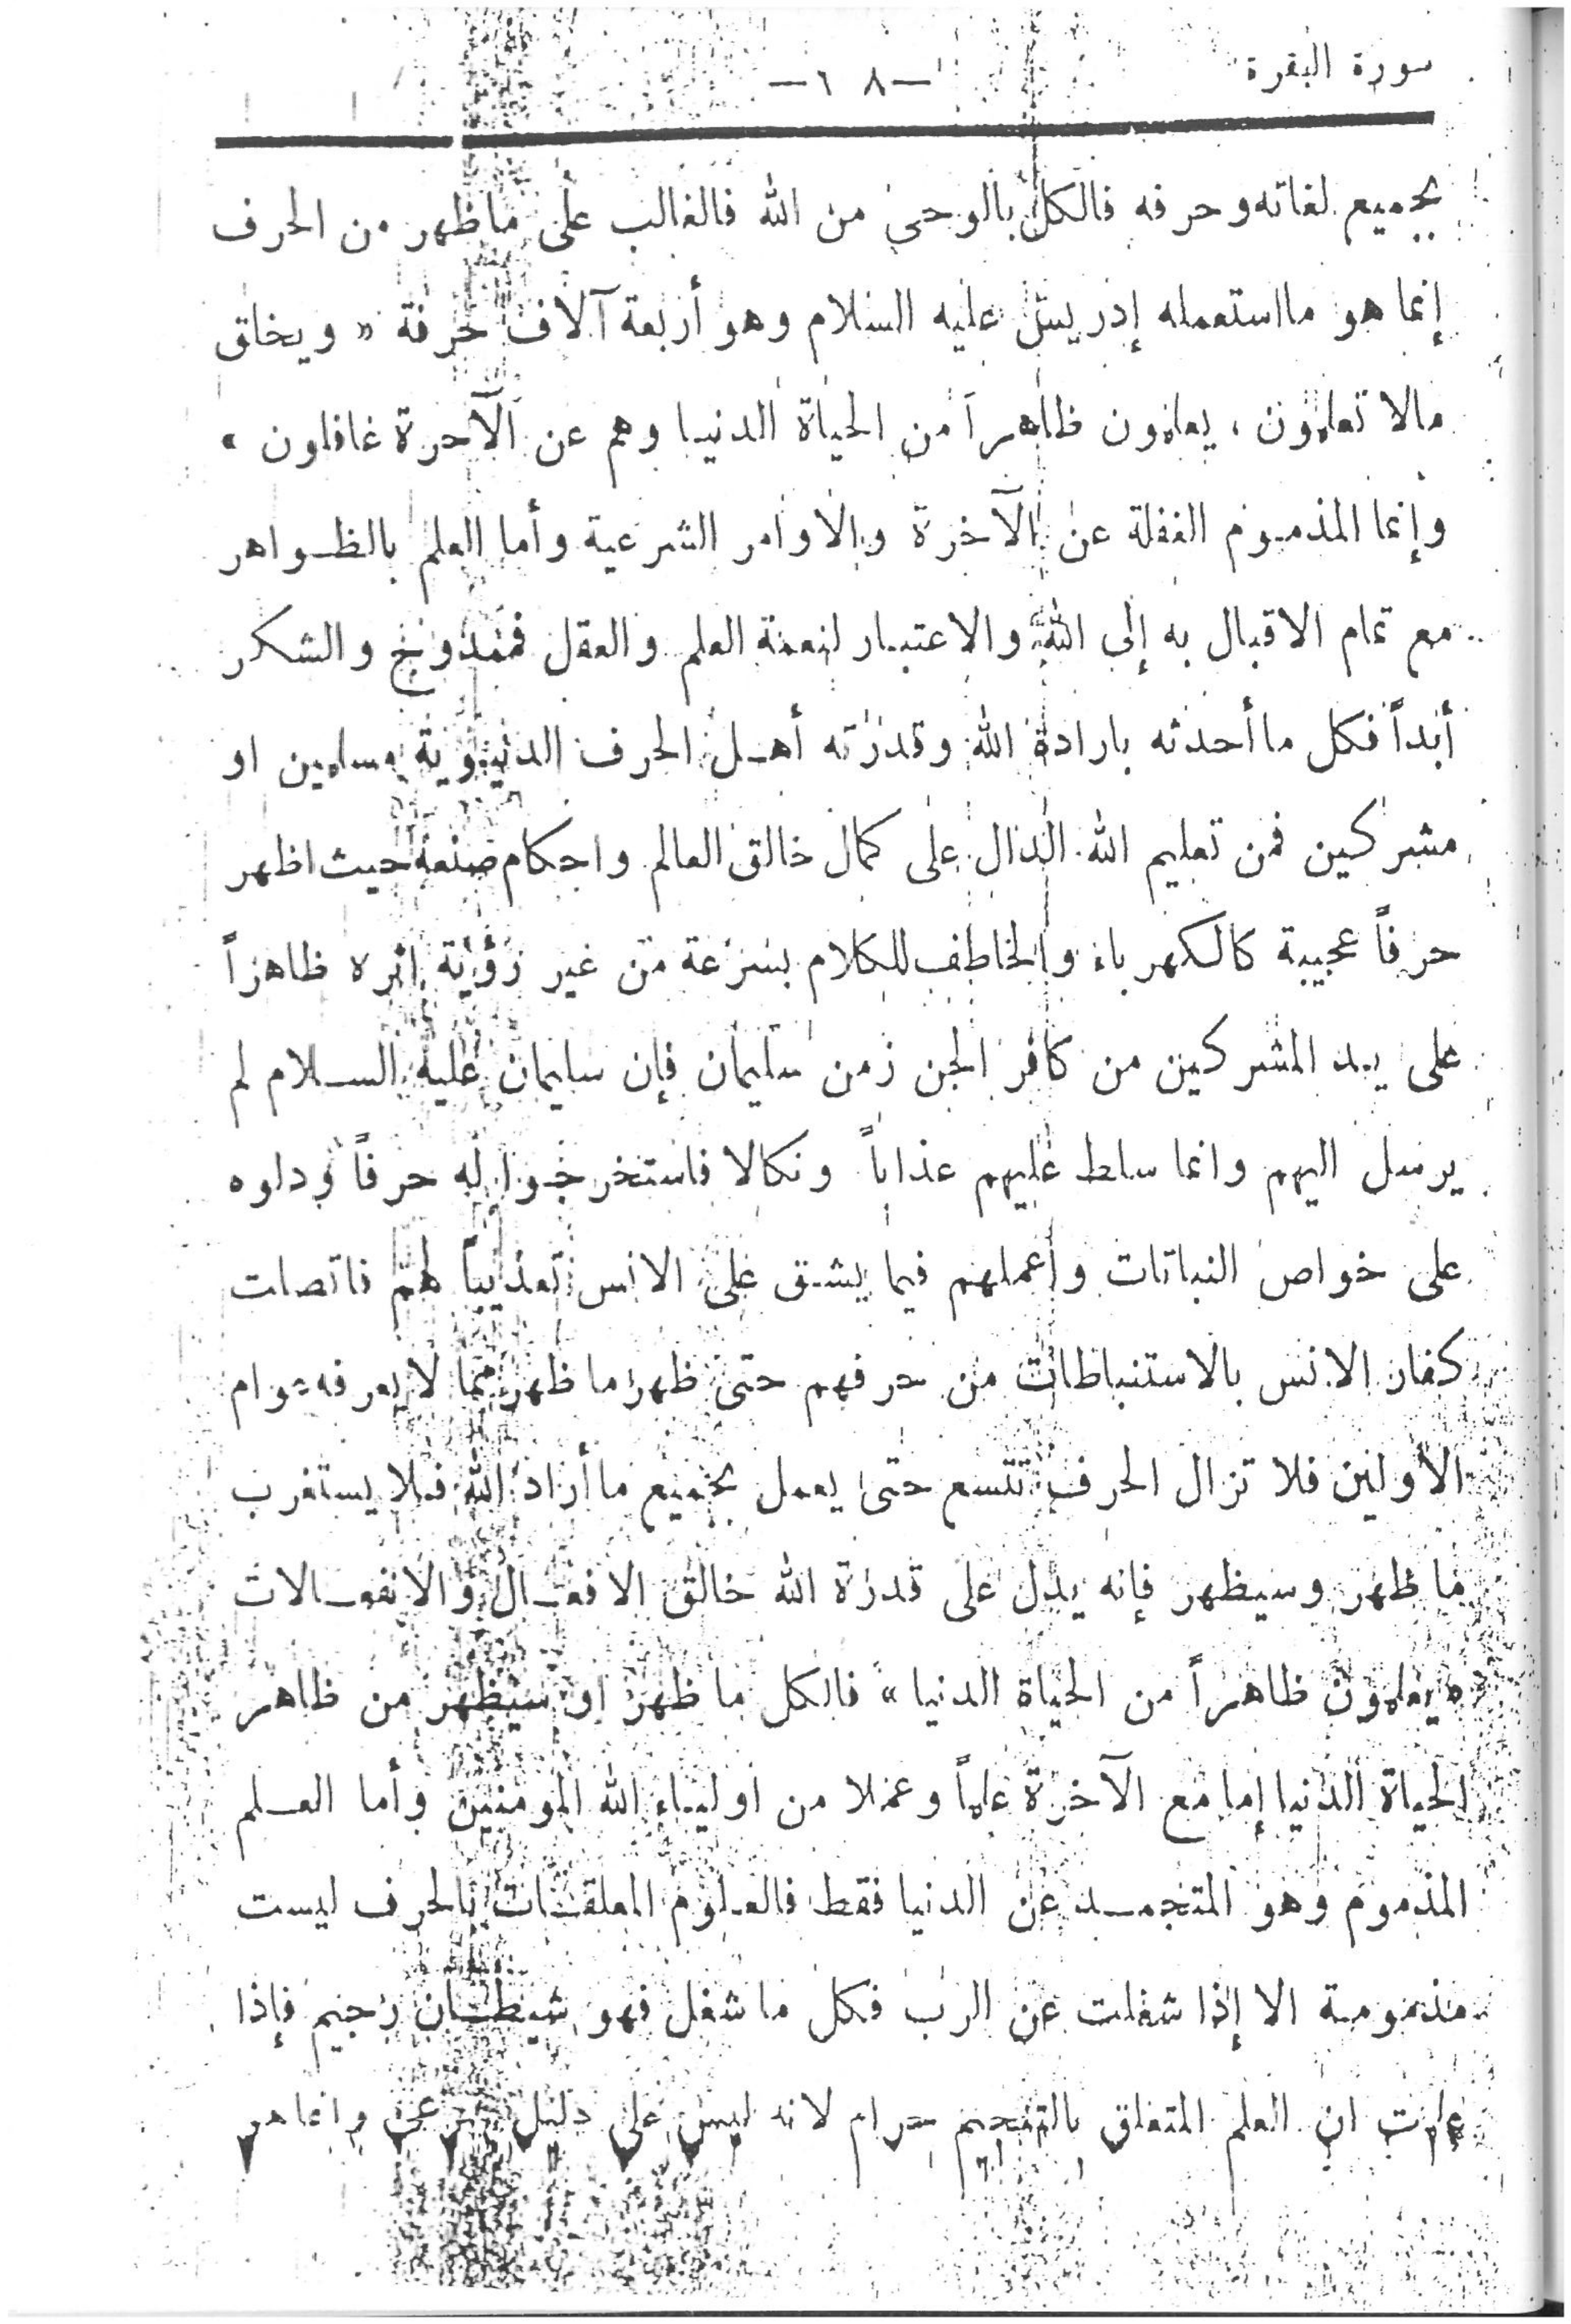 سورة البقرة
— ٨ ٦ —
بجميع لغاته وحرفه فالكل بالوحي من الله فالغالب على ما ظهر من الحرف
إنما هو ما استعمله إدريس عليه السلام وهو أربعة آلاف حرفة « ويخلق
مالا تعلمون ، يعلمون ظاهراً من الحياة الدنيا وهم عن الآخرة غافلون »
وإنما المذموم الغفلة عن الآخرة والاوامر الشرعية وأما العلم بالظواهر
مع تمام الاقبال به إلى الله والاعتبار لنعمة العلم والعقل فممدوح والشكر
أبداً فكل ما أحدثه بارادة الله وقدرته أهل الحرف الدنيوية مسلمين او
مشركين فمن تعليم الله الدال على كمال خالق العالم واحكام صنعه حيث اظهر
حرفاً عجيبة كالكهرباء والخاطف للكلام بسرعة من غير رؤية اثره ظاهراً
على يد المشركين من كافر الجن زمن سليمان فإن سليمان عليه السلام لم
يرسل اليهم وانما سلط عليهم عذاباً ونكالا فاستخرجوا له حرفاً ودلوه
على خواص النباتات وأعملهم فيما يشق على الانس تعذيباً لهم فاتصلت
كفار الانس بالاستنباطات من حرفهم حتى ظهر ما ظهر مما لا يعرفه عوام
الأولين فلا تزال الحرف تتسع حتى يعمل بجميع ما أراد الله فلا يستغرب
ما ظهر وسيظهر فإنه يدل على قدرة الله خالق الافعال والانفعالات
« يعلمون ظاهراً من الحياة الدنيا » فالكل ما ظهر او سيظهر من ظاهر
الحياة الدنيا إما مع الآخرة علماً وعملا من اولياء الله المومنين وأما العلم
المذموم وهو المتجمد عن الدنيا فقط فالعلوم المعلقات بالحرف ليست
مذمومة الا إذا شغلت عن الرب فكل ما شغل فهو شيطان رجيم فإذا
علمت ان العلم المتعلق بالتنجيم حرام لانه ليس على دليل شرعي وانما هو